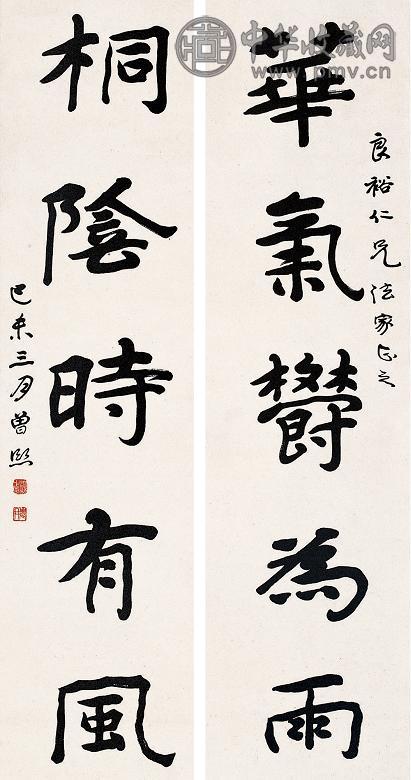 中华收藏网
www.pmv.cn
良裕仁兄法家正之
華氣欝為雨
桐陰時有風
己未三月曾熙